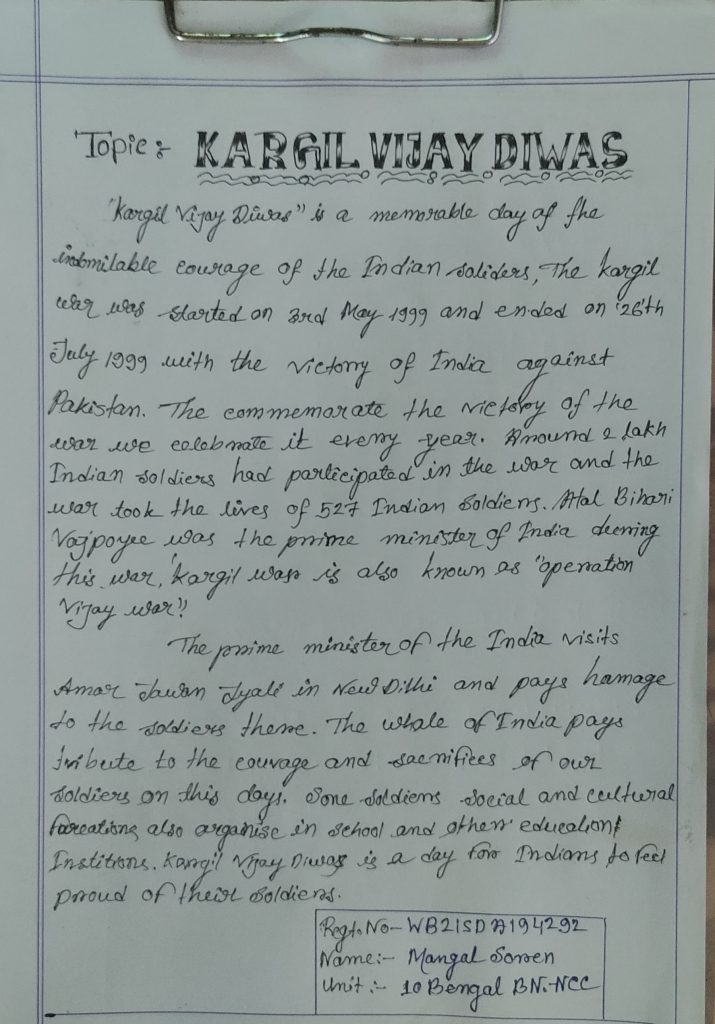 Topic :- KARGIL VIJAY DIWAS
"Kargil Vijay Diwas" is a memorable day of the
indomilable courage of the Indian soliders, The kargil
war was started on 3rd May 1999 and ended on '26'th
July 1999 with the victorry of India against
Pakistan. The commemorate the victory of the
war we celebrate it every year. Around 2 Lakh
Indian soldiers had participated in the war and the
war took the lives of 527 Indian soldiers. Atal Bihari
Vajpoyee was the prime minister of India deering
this war, 'kargil war is also known as "operation
Vijay war"
The prime minister of the India visits
Amar Jawan Jyali in New Dilhi and pays hamage
to the soldiers there. The whale of India pays
tribute to the couvage and sacrifices of our
soldiers on this days. Sone soldiers social and cultural
also arganise in school and other education
Institions. Kargil Vijay Diwas is a day for Indians to feel
proud of their soldiers.
Regt. No - WB21SDA194292
Name :- Mangal Soren
Unit :- 10 Bengal BN.-NCC